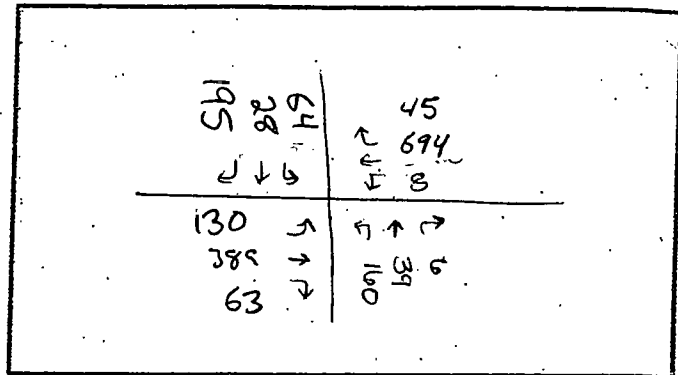 195
28
64
45
694
8
130
389
63
160
39
6